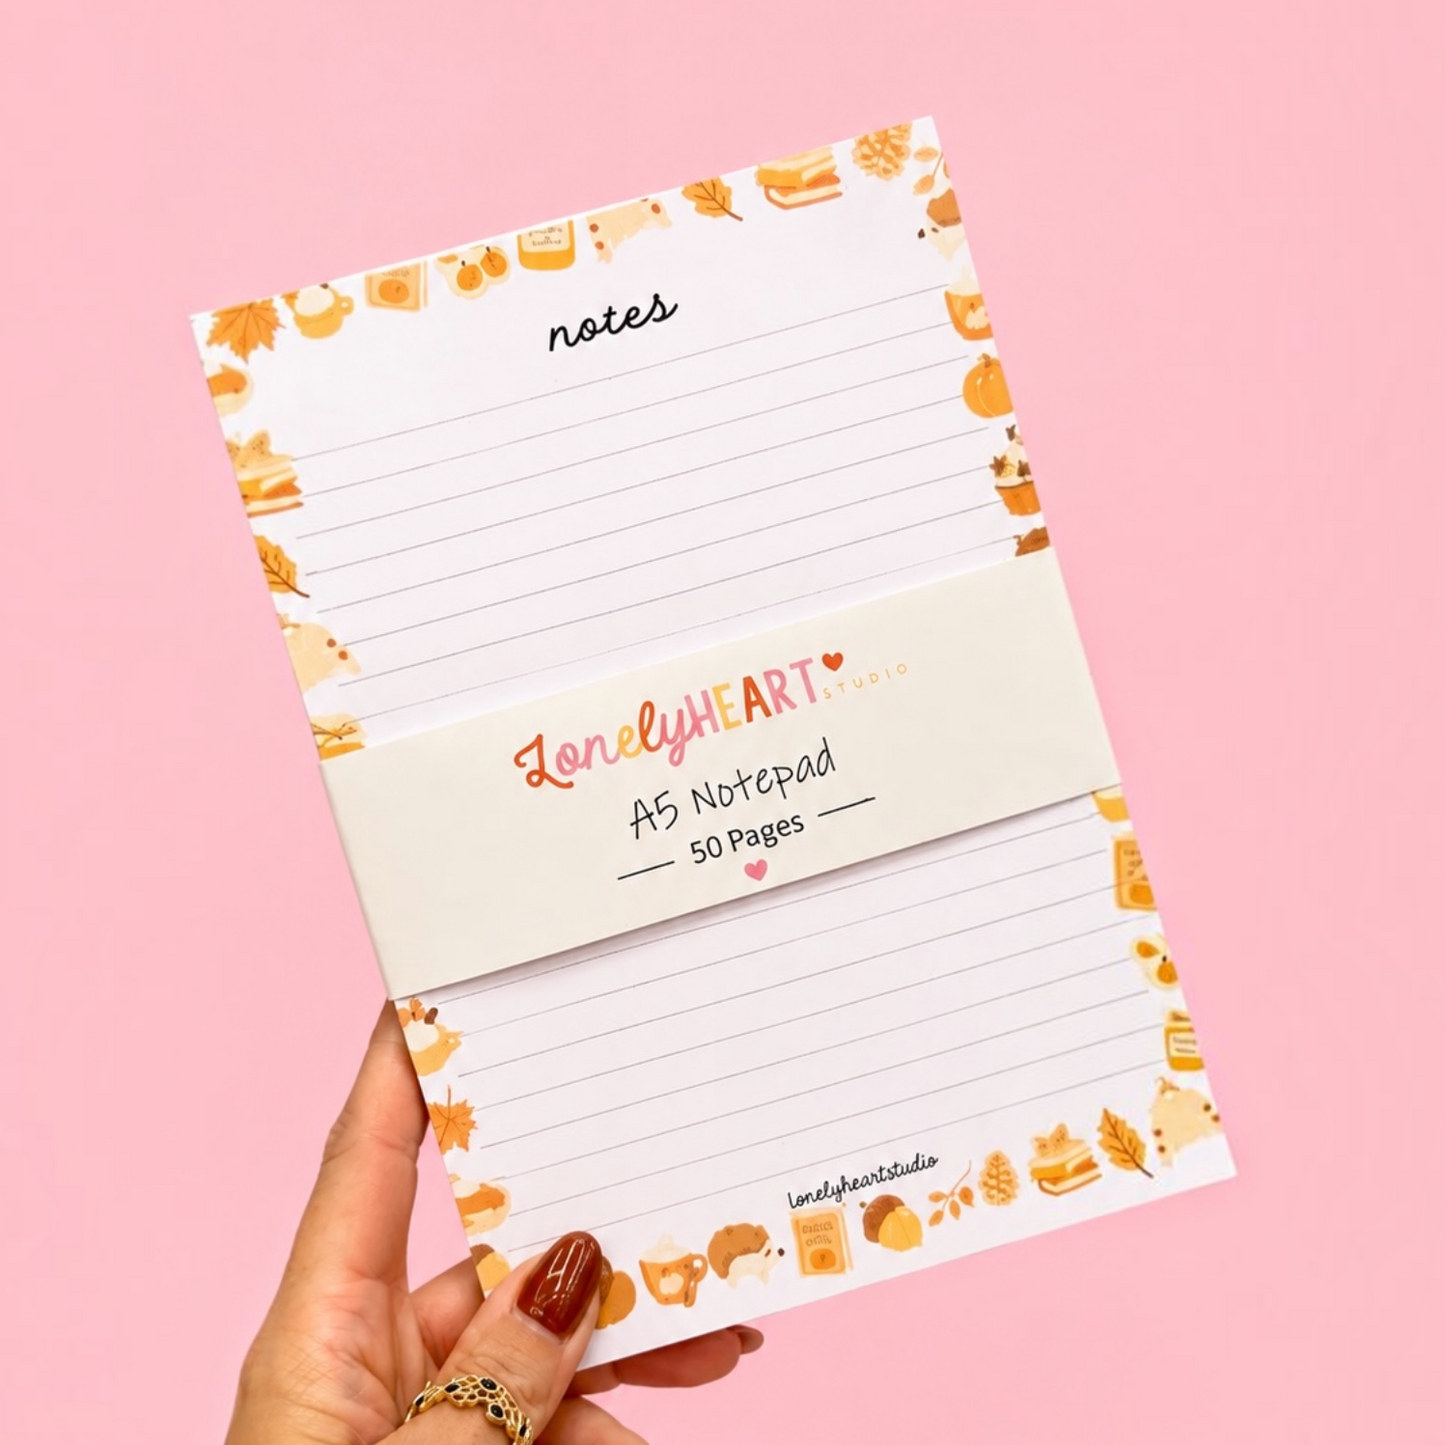 notes
LonelyHEART STUDIO
A5 Notepad
50 Pages
lonelyheartstudio